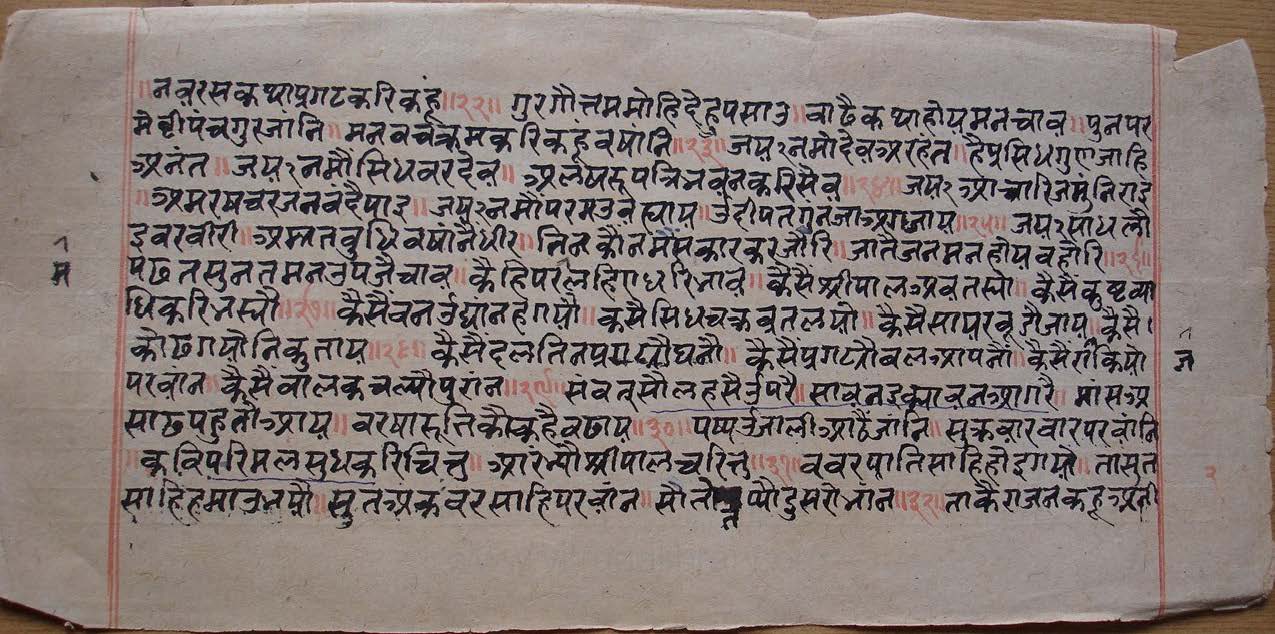 ॥नवरसकथाप्रगटकरिकहूं॥२२॥ गुरगौत्तममोहिदेहुपसाउ॥वाढैकथाहोयमनचाव॥पुनपर
मेष्टीपंचगुरजांनि॥मनवचक्रमकरिकहूवषांनि॥२३॥जय२नमोदेवअरहंत॥हैप्रसिधगुणजाहि
अनंत॥जय२नमौसिधवरदेव॥अलषरूपत्रिभवनकरिसेव॥२४॥जय२आचारिजमुनिराइ
॥अमरषचरजनवंदैपाइ॥जय२नमौंपरमउवझाय॥उदीपतगुनजाअगाजाय॥२५॥जय२साधलौ
इवरवीरी॥अम्रतवुधिवषांनैधीर॥तिनकौनमसकारकरजोरि॥जातैजनमनहोयवहोरि॥२६॥
पढतसुनतमनउपजैचाव॥कैहिपरलहिगाधरिभाव॥कैसैंश्रीपालअवतर्‍यो॥कैसैंकुष्टव्या
धिकरिभर्‍यौ॥२७॥कैसैवनउद्यांनहेगयौ॥कैसैसिधचक्रव्रतलयो॥कैसैसायरवूडौजाय॥कैसै
कौढगयौनिकुताय॥२८॥कैसैदलतिनपयट्यौघनौ॥कैसैंप्रगट्यौवलआपनौ॥कैसैराकियौ
परवांन॥कैसैंवालकचल्यौपुरांन॥२९॥संवत्सौलहसैउपरै॥सावनइक्यावनआगरै॥मांसअ
साढपहुतौआय॥वरषारूतिकौकहैवढाय॥३०॥पष्पउजालीआठैंजांनि॥सुक्रवारवारपरवांनि
॥कविपरिमलसुधकरिचित्तु॥आरंभ्यौश्रीपालचरित्तु॥३१॥ववरपातिसाहिहोइगयौ॥तासुत
साहिहमाउभयौ॥सुतअकवरसाहिपरवांन॥सौतप्यौदुसरोभांन॥३२॥ताकैराजनकहूअनी
म
न
२